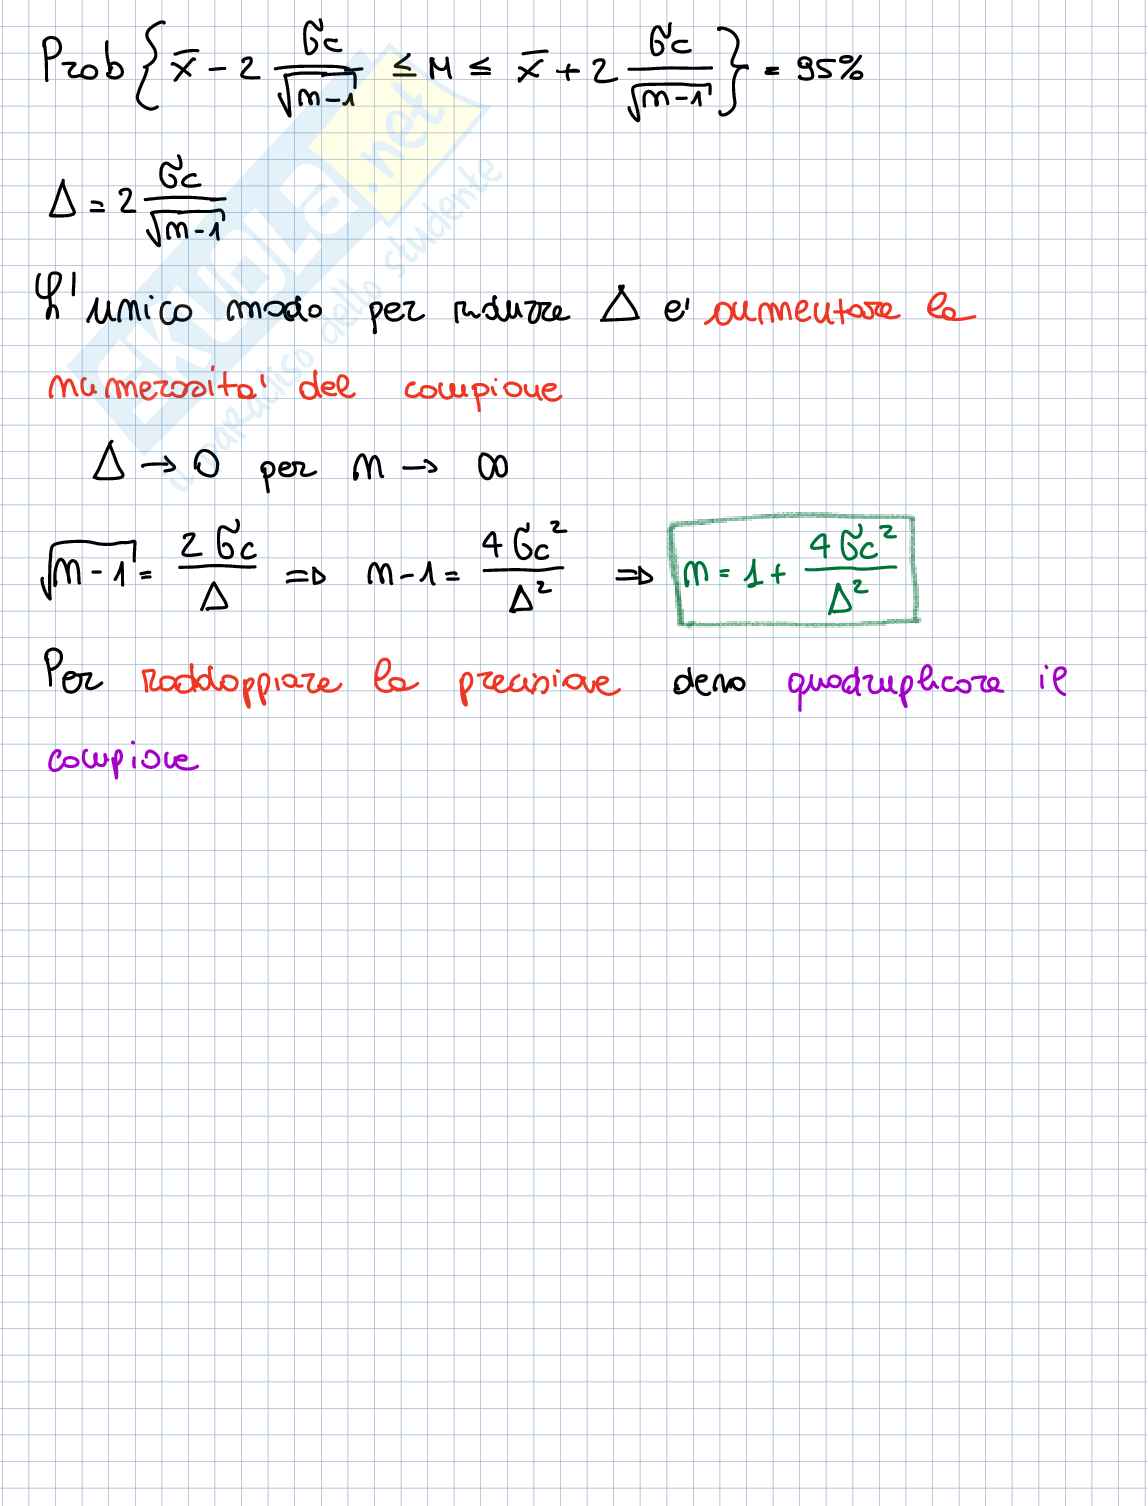 Prob { x̄ - 2 σc/√(n-1) ≤ M ≤ x̄ + 2 σc/√(n-1) } = 95%
Δ = 2 σc/√(n-1)
L'unico modo per ridurre Δ e' aumentare la
numerosita' del campione
Δ → 0 per n → ∞
√(n-1) = 2σc/Δ ⇒ n-1 = 4σc²/Δ² ⇒ n = 1 + 4σc²/Δ²
Per raddoppiare la precisione devo quadruplicare il
campione
SKUOLA.net
il paradiso dello studente